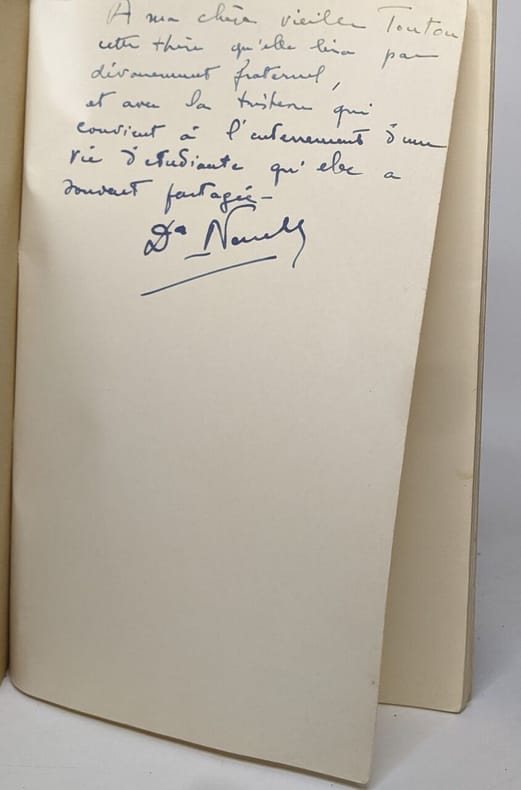 A ma chère vieille Toutou
cette thèse qu'elle lira par
dévouement fraternel,
et avec la tristesse qui
convient à l'enterrement d'une
vie d'étudiante qu'elle a
souvent partagée –